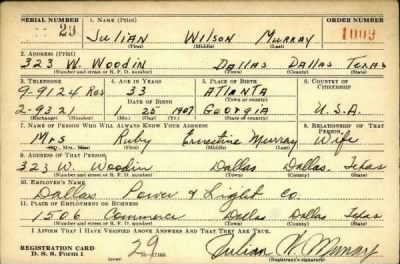 SERIAL NUMBER 1. NAME (Print) ORDER NUMBER
29 Julian Wilson Murray
(First) (Middle) (Last)
2. ADDRESS (Print)
323 W. Woodin Dallas Dallas Texas
(Number and street or R. F. D. number) (Town) (County) (State)
3. TELEPHONE 4. AGE IN YEARS 5. PLACE OF BIRTH 6. COUNTRY OF CITIZENSHIP
9-9124 Res 33 Atlanta
DATE OF BIRTH (Town or county)
2-9321 1 25 1907 Georgia U.S.A.
(Exchange) (Number) (Mo.) (Day) (Yr.) (State or country)
7. NAME OF PERSON WHO WILL ALWAYS KNOW YOUR ADDRESS 8. RELATIONSHIP OF THAT PERSON
Mrs Ruby Ernestine Murray Wife
(Mr., Mrs., Miss) (First) (Middle) (Last)
9. ADDRESS OF THAT PERSON
323 W. Woodin Dallas Dallas Texas
(Number and street or R. F. D. number) (Town) (County) (State)
10. EMPLOYER'S NAME
Dallas Power & Light Co
11. PLACE OF EMPLOYMENT OR BUSINESS
1506 Commerce Dallas Dallas Texas
(Number and street or R. F. D. number) (Town) (County) (State)
I AFFIRM THAT I HAVE VERIFIED ABOVE ANSWERS AND THAT THEY ARE TRUE.
REGISTRATION CARD
D. S. S. Form 1 29 Julian W. Murray